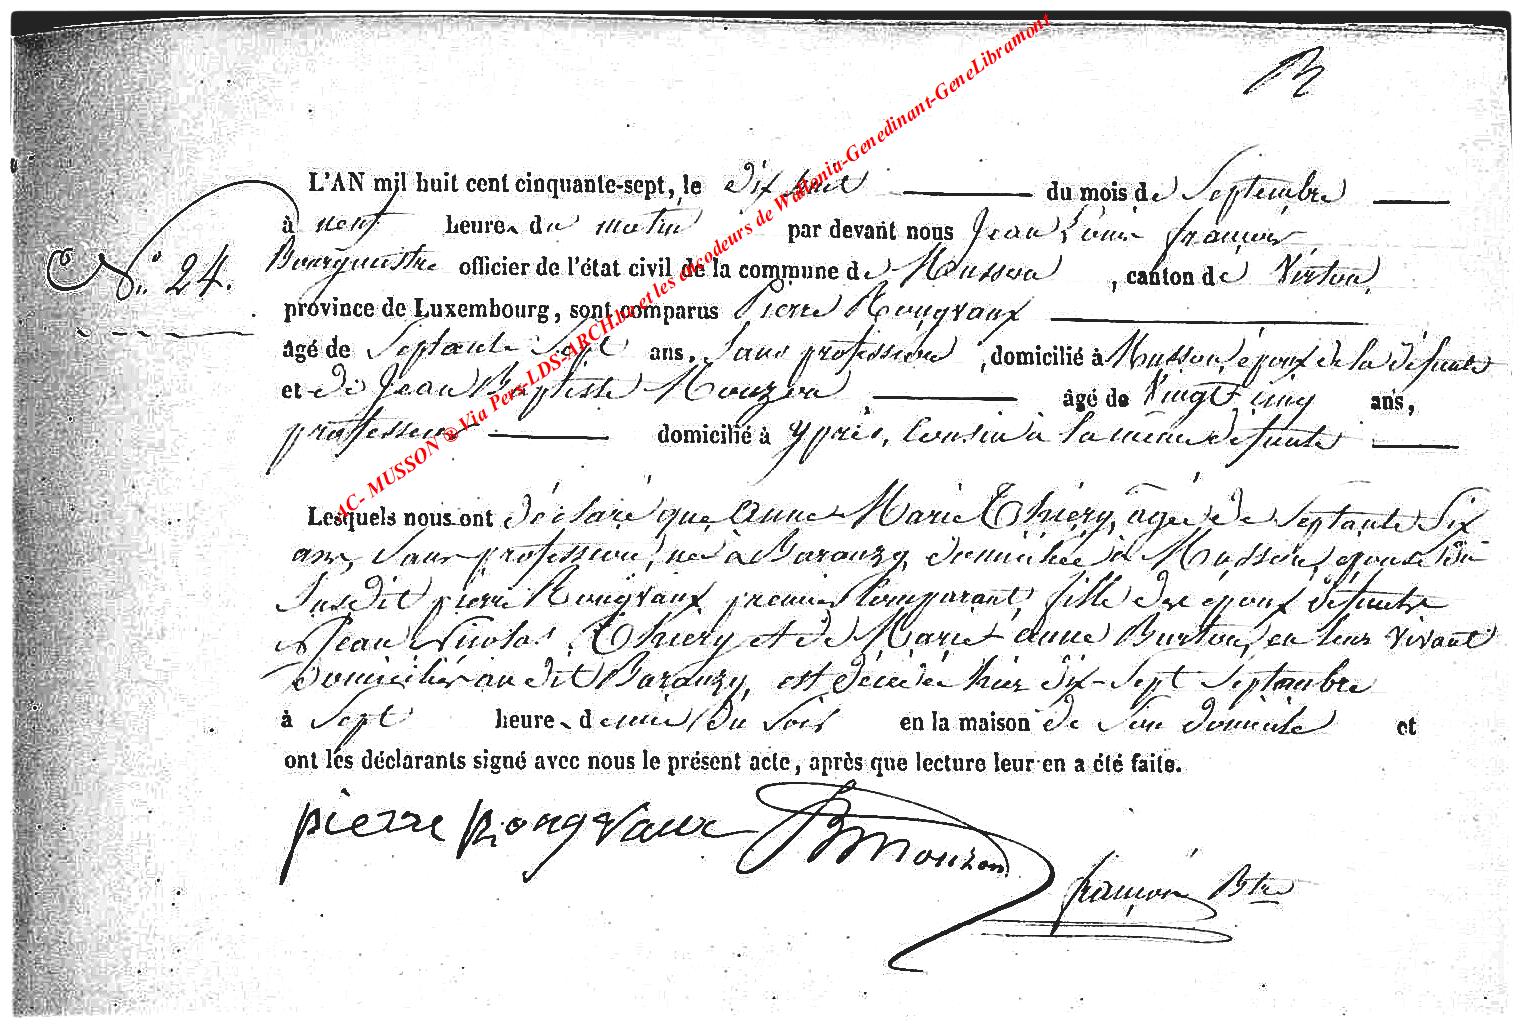 L'AN mil huit cent cinquante-sept, le dix huit du mois de Septembre
à neuf heures du matin par devant nous Jean Louis françois
N.° 24.
Bourgmestre officier de l'état civil de la commune de Musson, canton de Virton,
province de Luxembourg, sont comparus Pierre Rongvaux
âgé de Septante Sept ans, Sans profession, domicilié à Musson, époux de la défunte
et de Jean Baptiste Mouzon âgé de Vingt cinq ans,
professeur domicilié à ypres, Cousin à la même défunte
Lesquels nous ont déclaré que Anne Marie Thiery, agée de Septante Six
ans, Sans profession, née à Baranzy, domiciliée à Musson, épouse du
Susdit pierre Rongvaux premier Comparant, fille des époux défunts
Jean Nicolas Thiery et de Marie anne Burton, en leur vivant
domiciliés au dit Baranzy, est décédée hier dix-Sept Septembre
à Sept heures demie du Soir en la maison de Son domicile et
ont les déclarants signé avec nous le présent acte, après que lecture leur en a été faite.
pierre Rongvaux JBMouzon
françois Btre
AC- MUSSON ® Via Pers-LDS-ARCH.be et les encodeurs de Wallonia-Genedinant-GeneLibramont